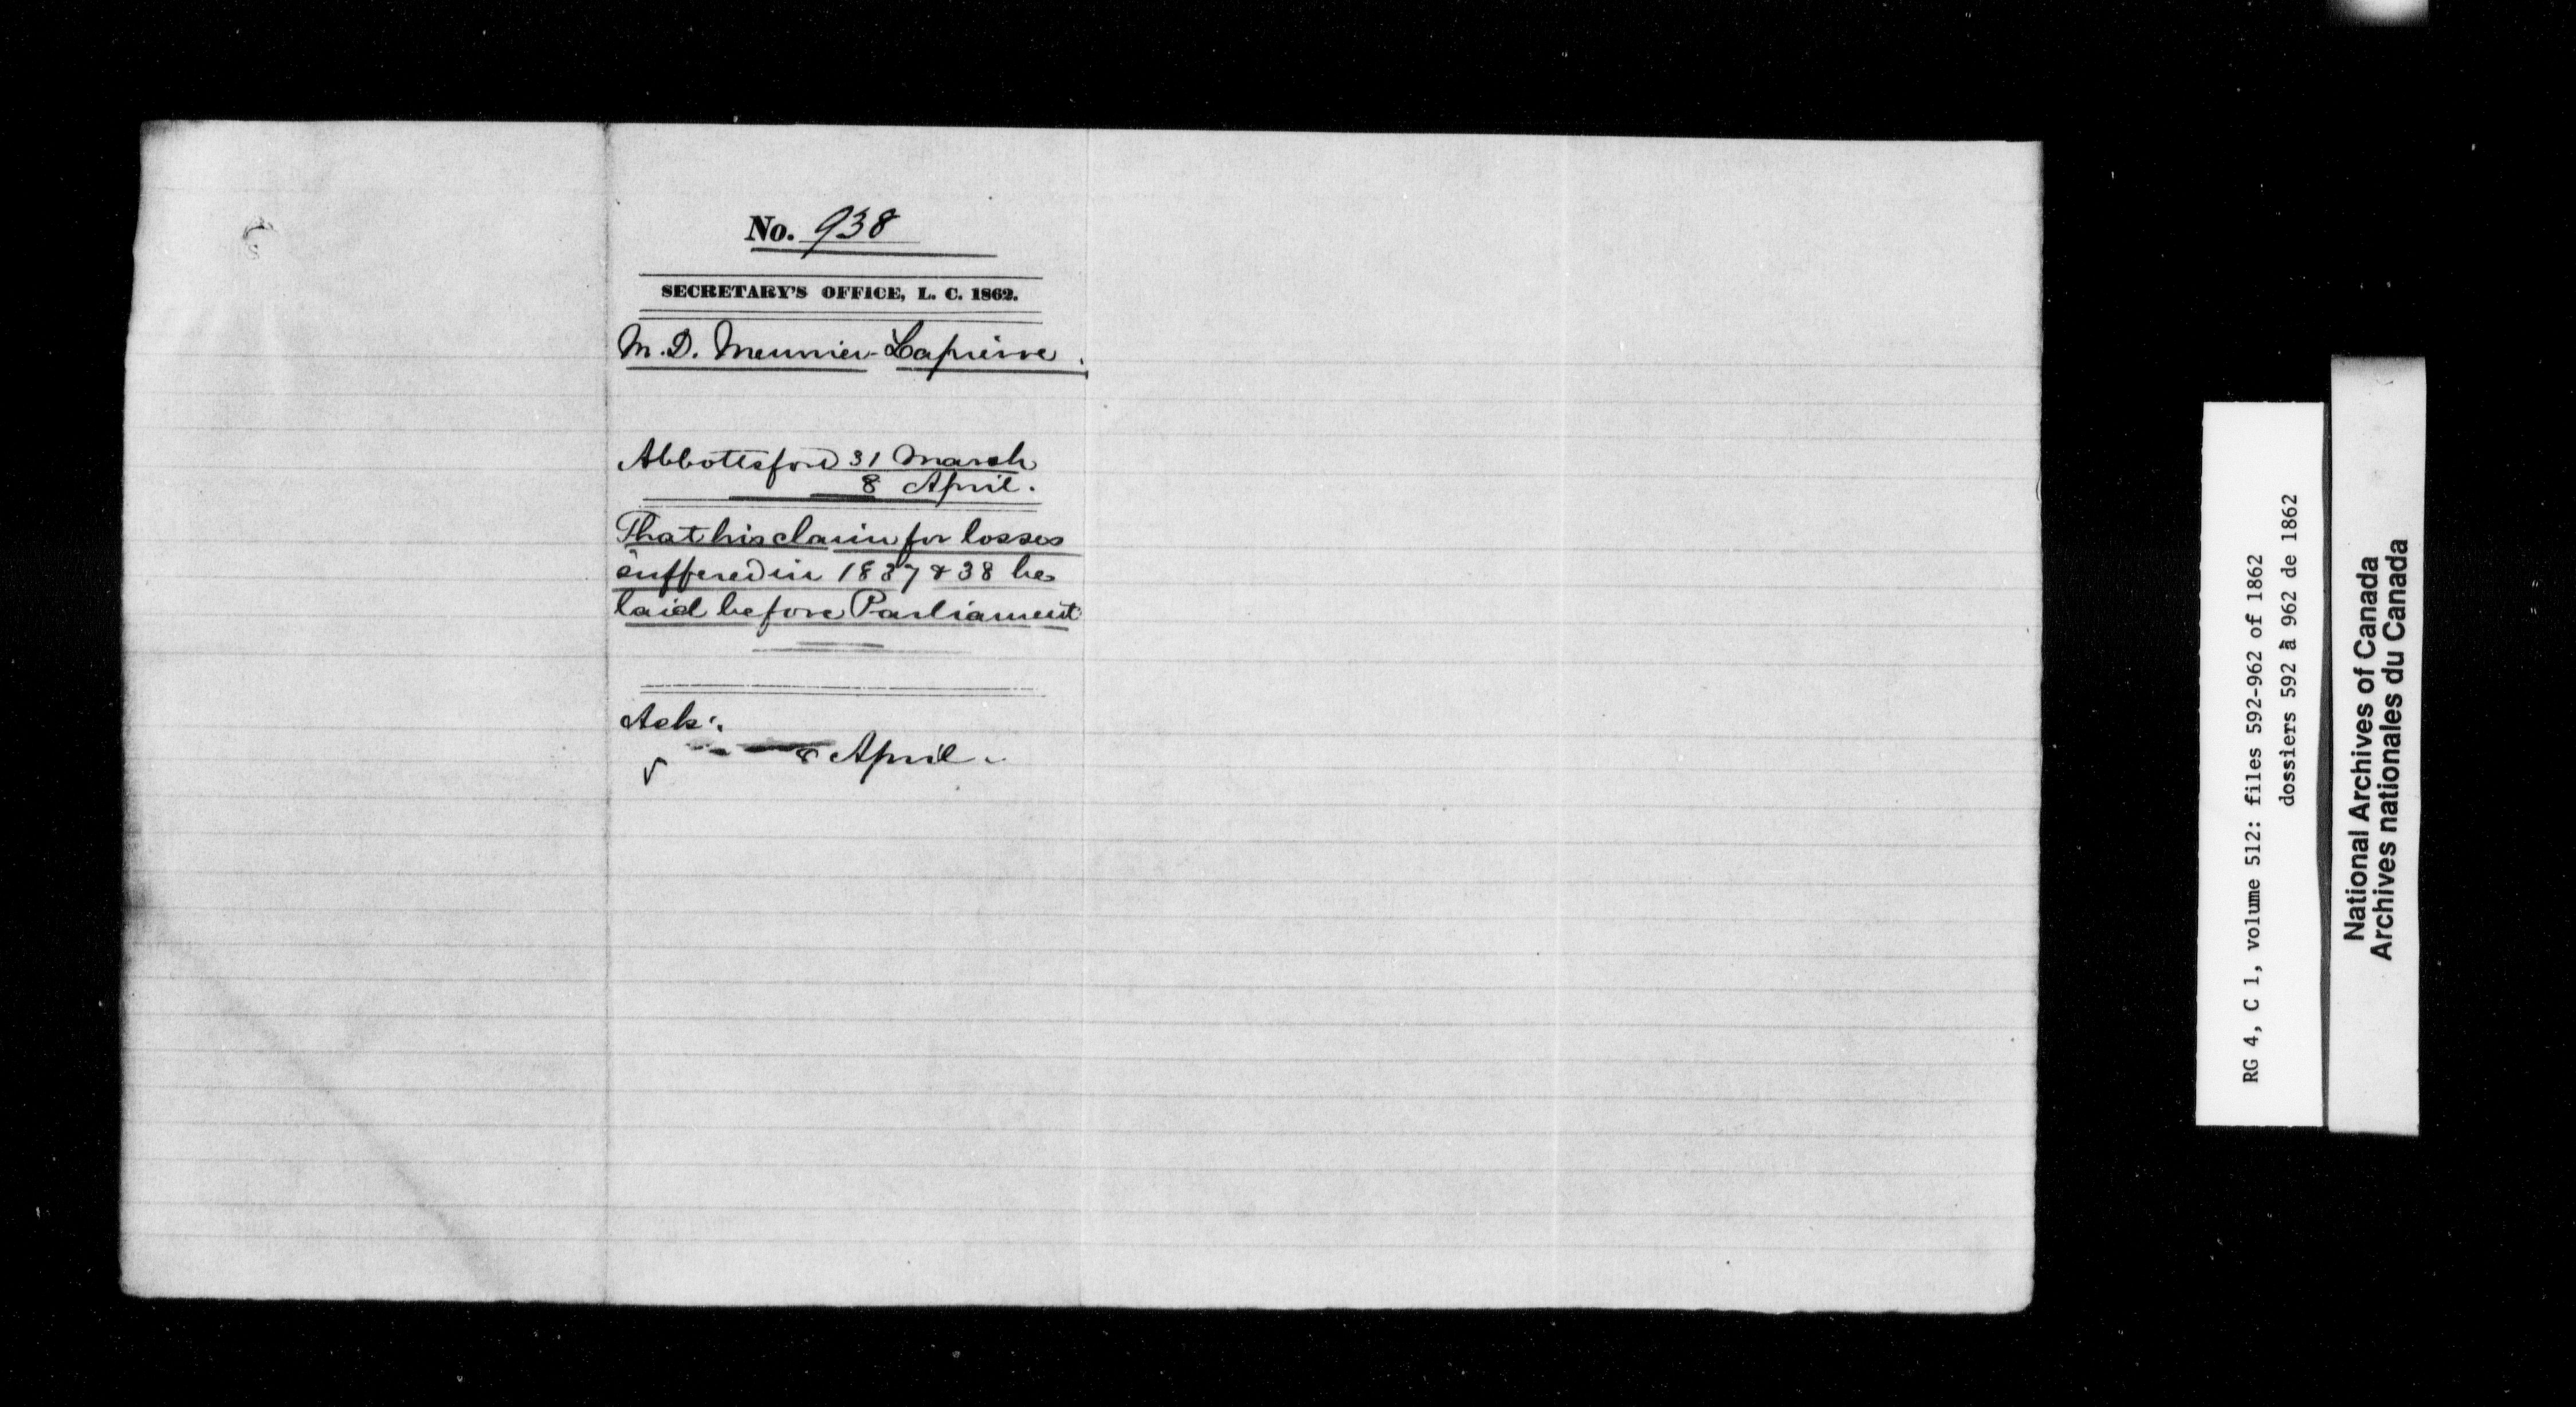 No. 938
SECRETARY'S OFFICE, L. C. 1862.
M. D. Meunier-Lapierre.
Abbottsford 31 March
8 April.
That his claim for losses
suffered in 1837 & 38 be
laid before Parliament
Ack:
8 April.
RG 4, C 1, volume 512: files 592-962 of 1862
dossiers 592 à 962 de 1862
National Archives of Canada
Archives nationales du Canada